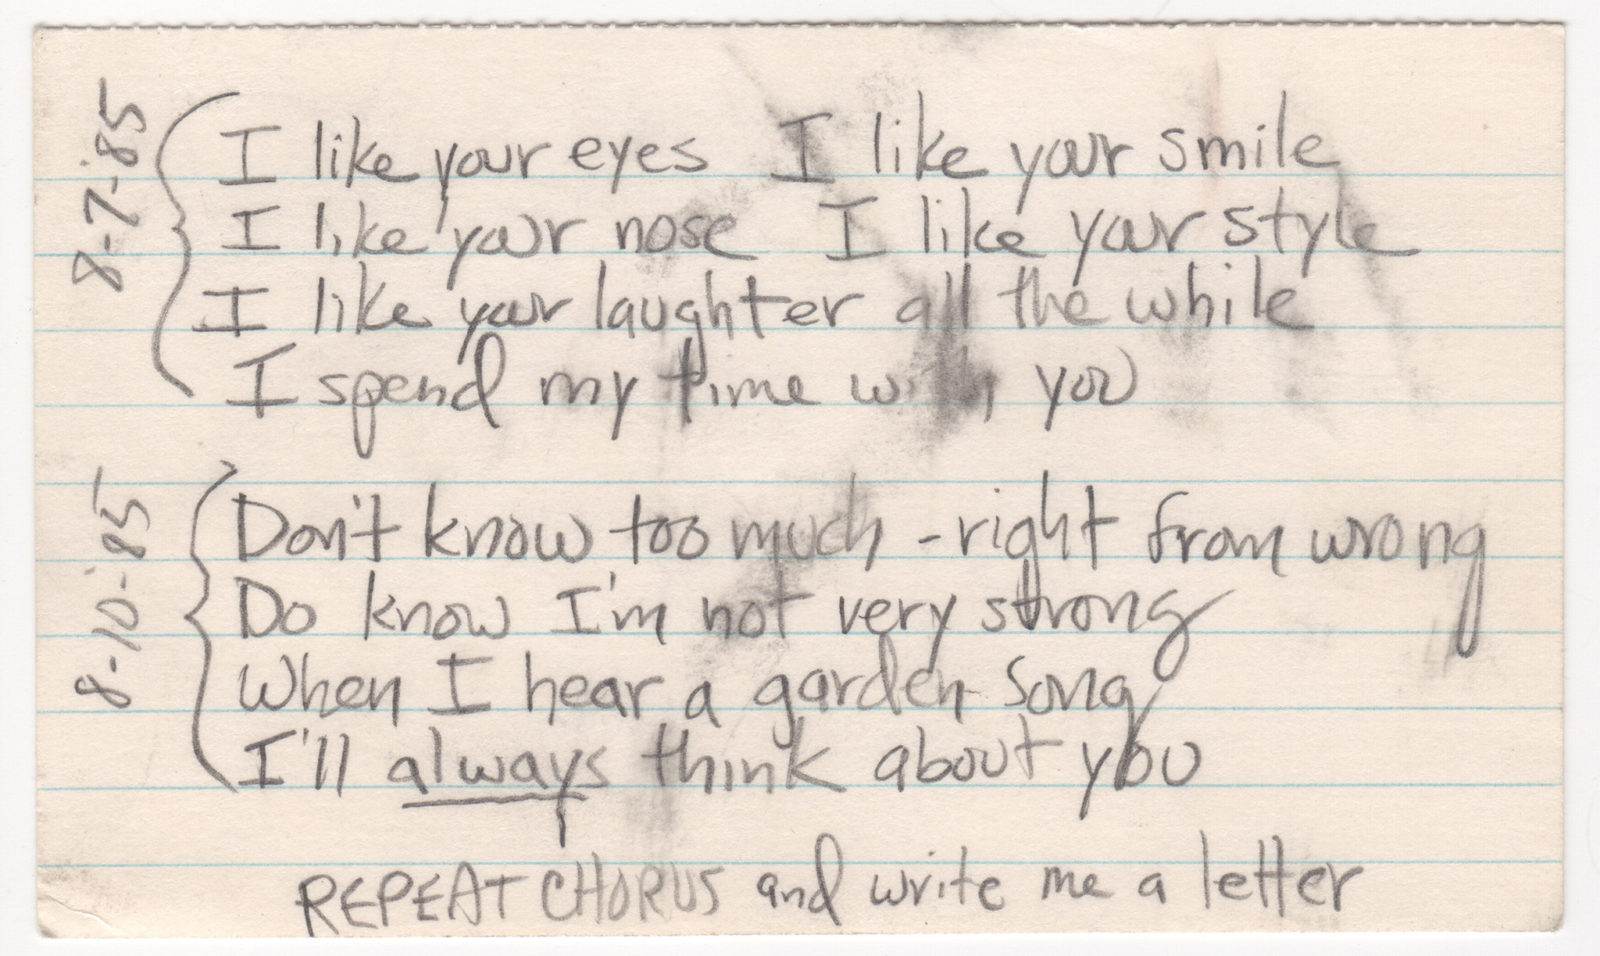 8-7-'85
I like your eyes I like your smile
I like your nose I like your style
I like your laughter all the while
I spend my time with you
8-10-'85
Don't know too much - right from wrong
Do know I'm not very strong
When I hear a garden song
I'll always think about you
REPEAT CHORUS and write me a letter